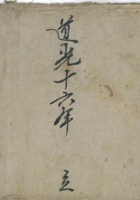 道光十六年 立